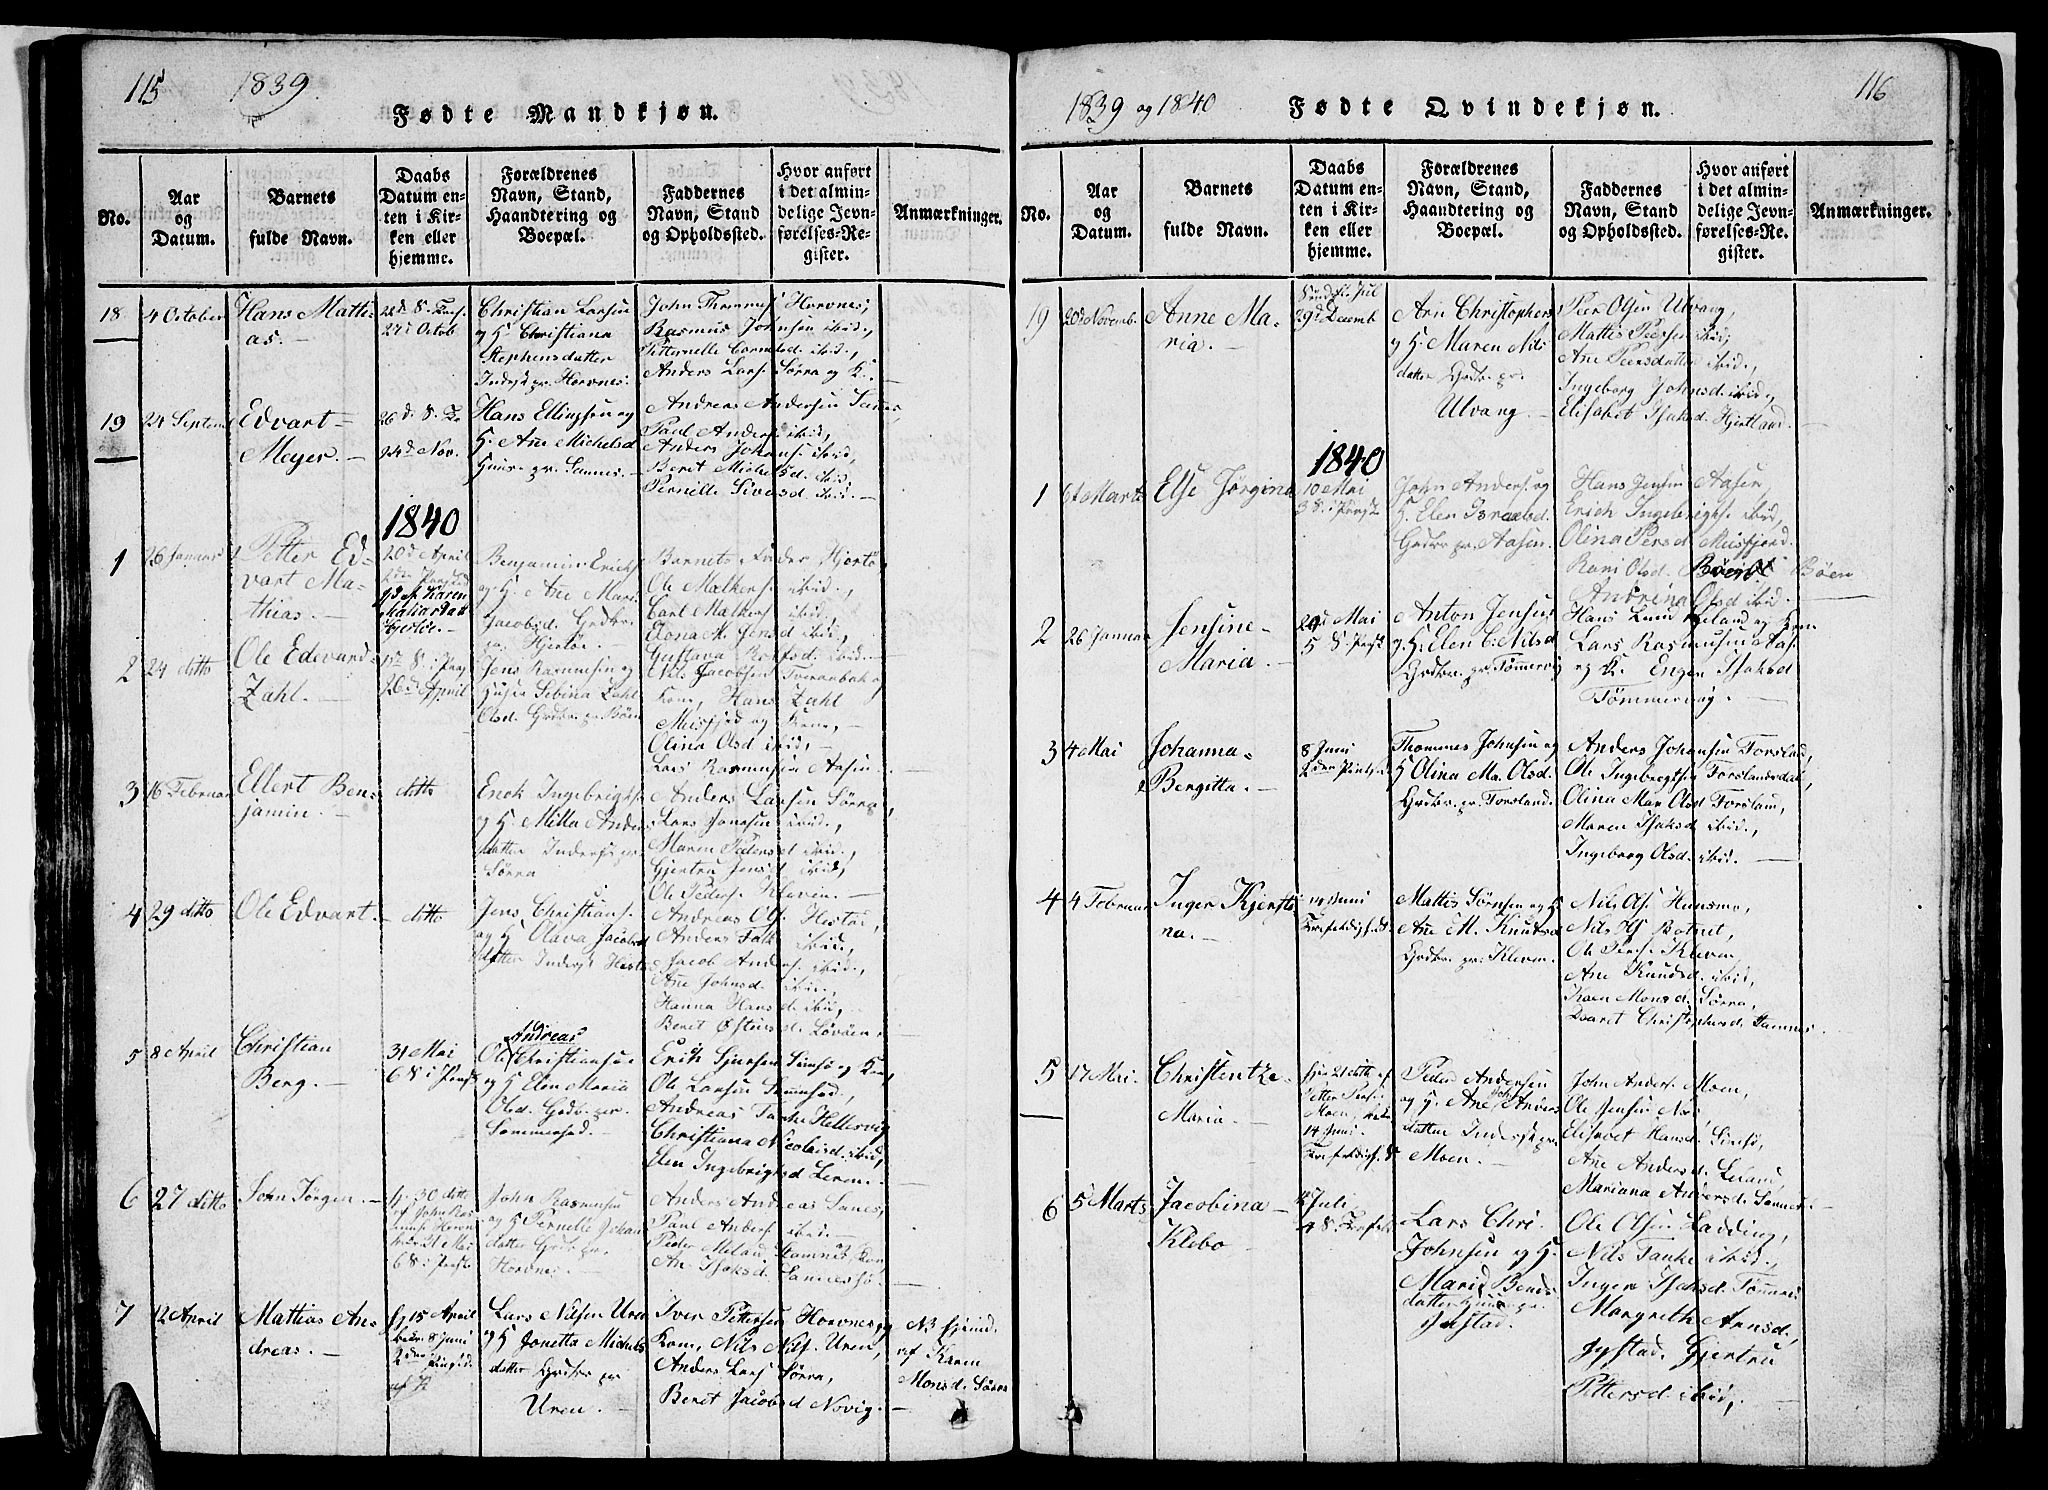 115 1839.
Fødte Mandkjøn.
No.
Aar og Datum.
Barnets fulde Navn.
Daabs Datum enten i Kirken eller hjemme.
Forældrenes Navn, Stand, Haandtering og Boepæl.
Faddernes Navn, Stand og Opholdssted.
Hvor anført i det almindelige Jevnførelses-Register.
Anmærkninger.
18 4 October Hans Matti-
as.
27d Octob
Christian Larsen
og H. Christiana
Stephensdatter
Inders pr. Horvnes.
John Thommes. Horvnes,
Rasmus Johnsen ibid,
Petternelle Cornelsd. ibid,
Anders Lars. Sørra og K.
19 24 Septem Edvart
Meyer.
26d. S. Tr.
24d Nov.
Hans Ellingsen og
H. Ane Michelsd
Huusm. pr. Sannes.
Andreas Andersen Sannes,
Paul Anders. ibid,
Anders Johans. ibid,
Berit Michelsd. ibid,
Pernille Sivesd. ibid.
1840
1 26 Januar Petter Ed-
vart Ma-
thias.
20d April
Benjamin Erichs.
og H. Ane Mari
Jacobsd. Grdbr.
pr. Hjertøe.
Barnets Fader Hjertø
Ole Malkers. ibid,
Carl Malkers. ibid,
Elona M. Jensd ibid,
Gustava Rolfsd. ibid.
2 24 ditto Ole Edevard
Zahl.
26d April
Jens Rasmussen og
Hustr. Sebina Zahl
Olsd. Grdbr. pr. Bøen
Nils Jacobsen Tveraabak og
Kone, Hans Zahl
Meisfjord og Kone,
Olina Olsd ibid,
Lars Rasmussen Aasen.
3 16 Februar Ellert Ben-
jamin.
ditto
Erick Ingebrigts.
og H. Milla Anders
datter Inders pr.
Sørra
Anders Larsen Sørra,
Lars Jonassen ibid,
Maren Pedersd ibid,
Gjertru Jensd ibid,
Ole Peders. Kleven.
4 29 ditto Ole Edvart.
ditto
Jens Christians.
og H Olava Jacobs
datter Inders Hestad
Andreas Ols. Hestad,
Anders Falk ibid,
Jacob Anders. ibid,
Ane Johnsd. ibid,
Hanna Hansd. ibid,
Beret Østensd. Løvøen.
5 8 April Christian
Berg.
31 Mai
6 S. i Paask
Andreas
Ole Christiansen
og H Elen Maria
Olsd. Grdbr. pr.
Sommersæd.
Erich Sjursen Simsø og Kone,
Ole Larsen Sommersæd,
Andreas Tanke Hellesvig
Christiana Nicolaisd. ibid,
Elen Ingebrigtsd Leren.
6 27 ditto John Jørgen.
hj. 30 ditto
af John Ras
muss. Horvn
bekr. 31 Mai
6 S. i Paask
John Rasmussen
og H Pernelle Johan
datter Grdbr. pr.
Horvnes.
Anders Andreas Sannes,
Paul Anders. ibid
Peder Meland Stamnes og Kone,
An. Isaksd. Sannersø.
7 12 April Mattias An-
dreas.
hj 15 April
bekr. 8 Juni
2den Pintsd.
Lars Nilsen Uren
og H Jonetta Michels
datter Grdbr pr
Uren.
Iver Pettersen Horvnes og
Kone, Nils Nils. Uren,
Anders Lars. Sørra,
Beret Jacobsd Novig.
NB hjemd.
af Karen
Monsd. Sørra
1839 og 1840 116
Fødte Qvindekjøn.
No.
Aar og Datum.
Barnets fulde Navn.
Daabs Datum enten i Kirken eller hjemme.
Forældrenes Navn, Stand, Haandtering og Boepæl.
Faddernes Navn, Stand og Opholdssted.
Hvor anført i det almindelige Jevnførelses-Register.
Anmærkninger.
19 20d Novemb. Anne Ma-
ria.
Sønd. f. Jul
29d Decemb
Arn Christophers
og H. Maren Nils
datter Grdbr. pr.
Ulvang.
Peer Olsen Ulvang,
Mattis Peersen ibid,
Ane Peersdatter ibid,
Ingeborg Johnsd. ibid,
Elisabet Isaksd. Hjertland.
1840
1 6t Marts Else Jørgina
10 Mai
3 S. i Paask
John Anders. og
H. Elen Israelsd.
Grdbr pr. Aasen.
Hans Jensen Aasen,
Erich Ingebrigts. ibid,
Olina Persd Meisfjord
Rani Olsd. Bøen
Andrina Olsd ibid.
2 26 Januar Jensine
Maria.
24d Mai
5 S. Paask
Anton Jensen
og H. Elen C. Nilsd
Grdbr. pr. Tømmervig
Hans Lund Leland og Kone
Lars Rasmussen Aas.
og K. Engen Isaksd
Tømmervig.
3 4 Mai Johanna
Bergitta.
8 Juni
2den Pintsd.
Thommes Johnsen og
H Olina Ma. Olsd.
Grdbr. pr. Forsland.
Anders Johansen Forsland,
Ole Ingebrigtsen Forslandsdal,
Olina Mar Olsd Forsland,
Maren Isaksd. ibid,
Ingeborg Olsd. ibid.
4 4 Februar Inger Kjersti-
na.
14 Juni
Trefoldighedsd.
Mattis Sørnsen og H
Ane M. Knuts d
Grdbr. pr. Kleven.
Nils Ols. Hunsmo,
Nils Ols Botnet,
Ole Pers. Kleven,
Ane Knudsd. ibid,
Karen Monsd. Sørra,
Baret Christophersd. Samnes.
5 17 Mai. Christentze
Maria.
hj. 21 dito af
Petter Pers.
Moen, bekr
14 Juni.
Trefoldigh. d
Peder Andersen
og H. Ane Joh Anders
datter Inders pr.
Moen.
John Anders. Moen,
Ole Jensen Nor,
Elisabet Hansd. Simsø,
Ane Andersd. Leland,
Mariana Andersd. Sannes.
6 5 Marts Jacobina
Klebo
12 Juli
4 S. Trefold
Lars Chri.
Johnsen og H.
Marid Bends
datter Huus pr.
Jystad.
Ole Olsen Ladding,
Nils Tanke ibid,
Inger Isaksd. Tømmer.
Margreth Arnsd.
Jystad, Gjertru
Pettersd. ibid,